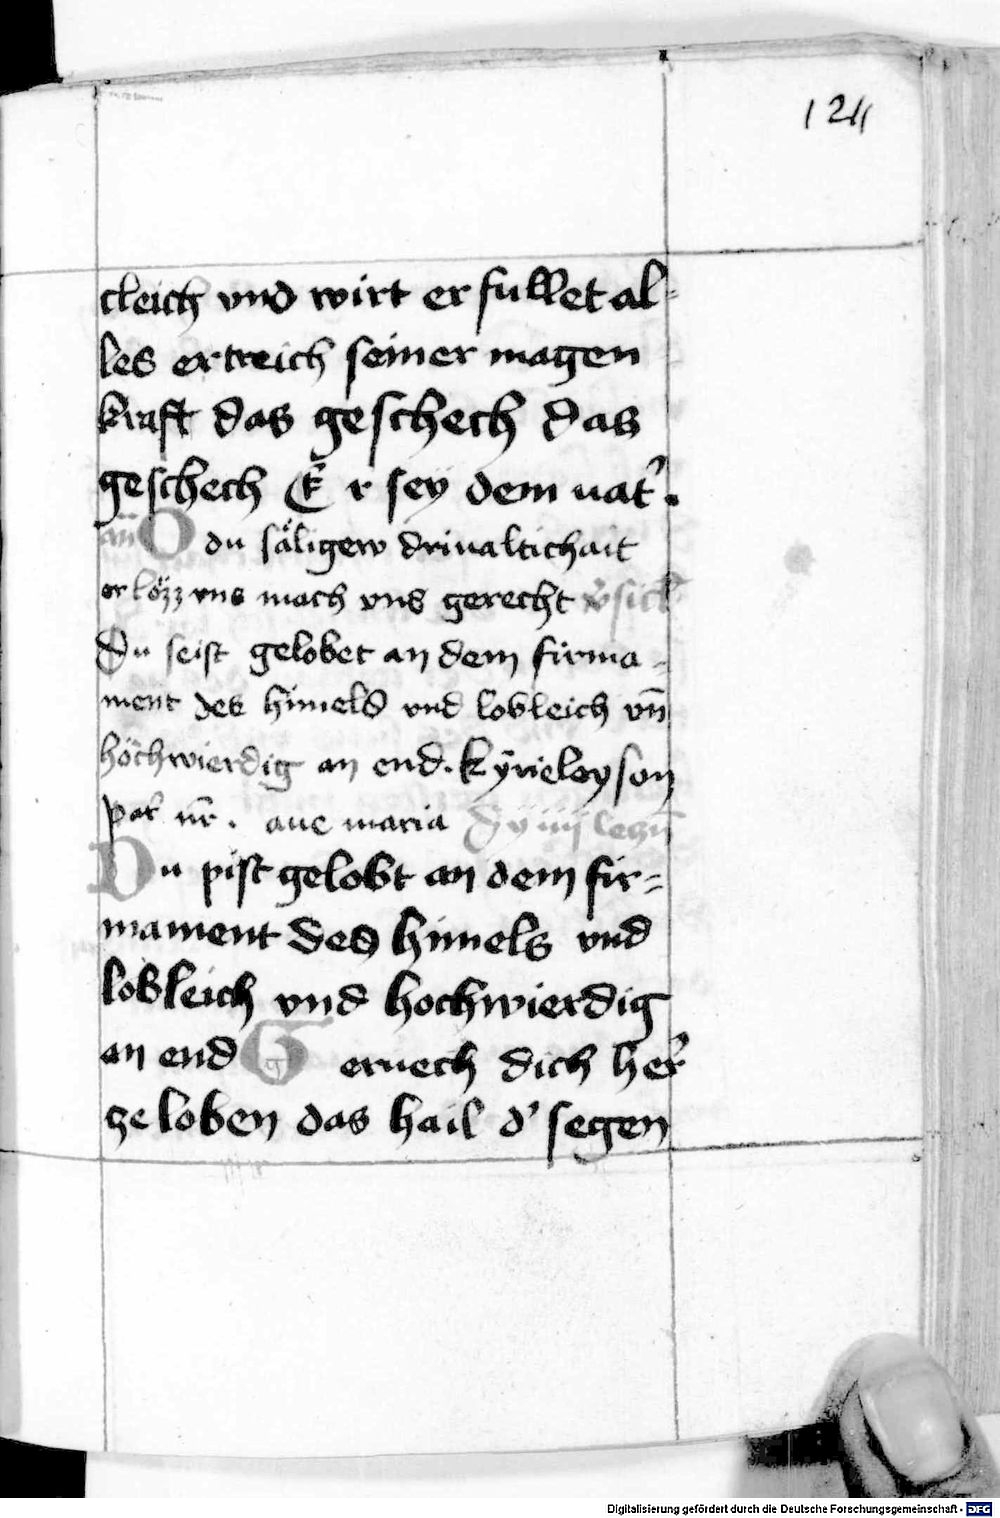 124
cleich vnd wirt er fullet al-
les ertreich seiner magen
kraft das geschech das
geschech Er sey dem uat̉.
an̄ O du sa̋ligew driualtichait
er lözz vns mach vns gerecht v̉sick̉
Du seist gelobet an dem firma-
ment des himels vnd lobleich vn̄
höchwierdig an end. kyrieleyson
pat̉ nr̄. aue maria
Du pist gelobt an dem fir-
mament des himels vnd
lobleich vnd hochwierdig
an end Geruech dich her̉
ze loben das hail d' segen
Digitalisierung gefördert durch die Deutsche Forschungsgemeinschaft - DFG